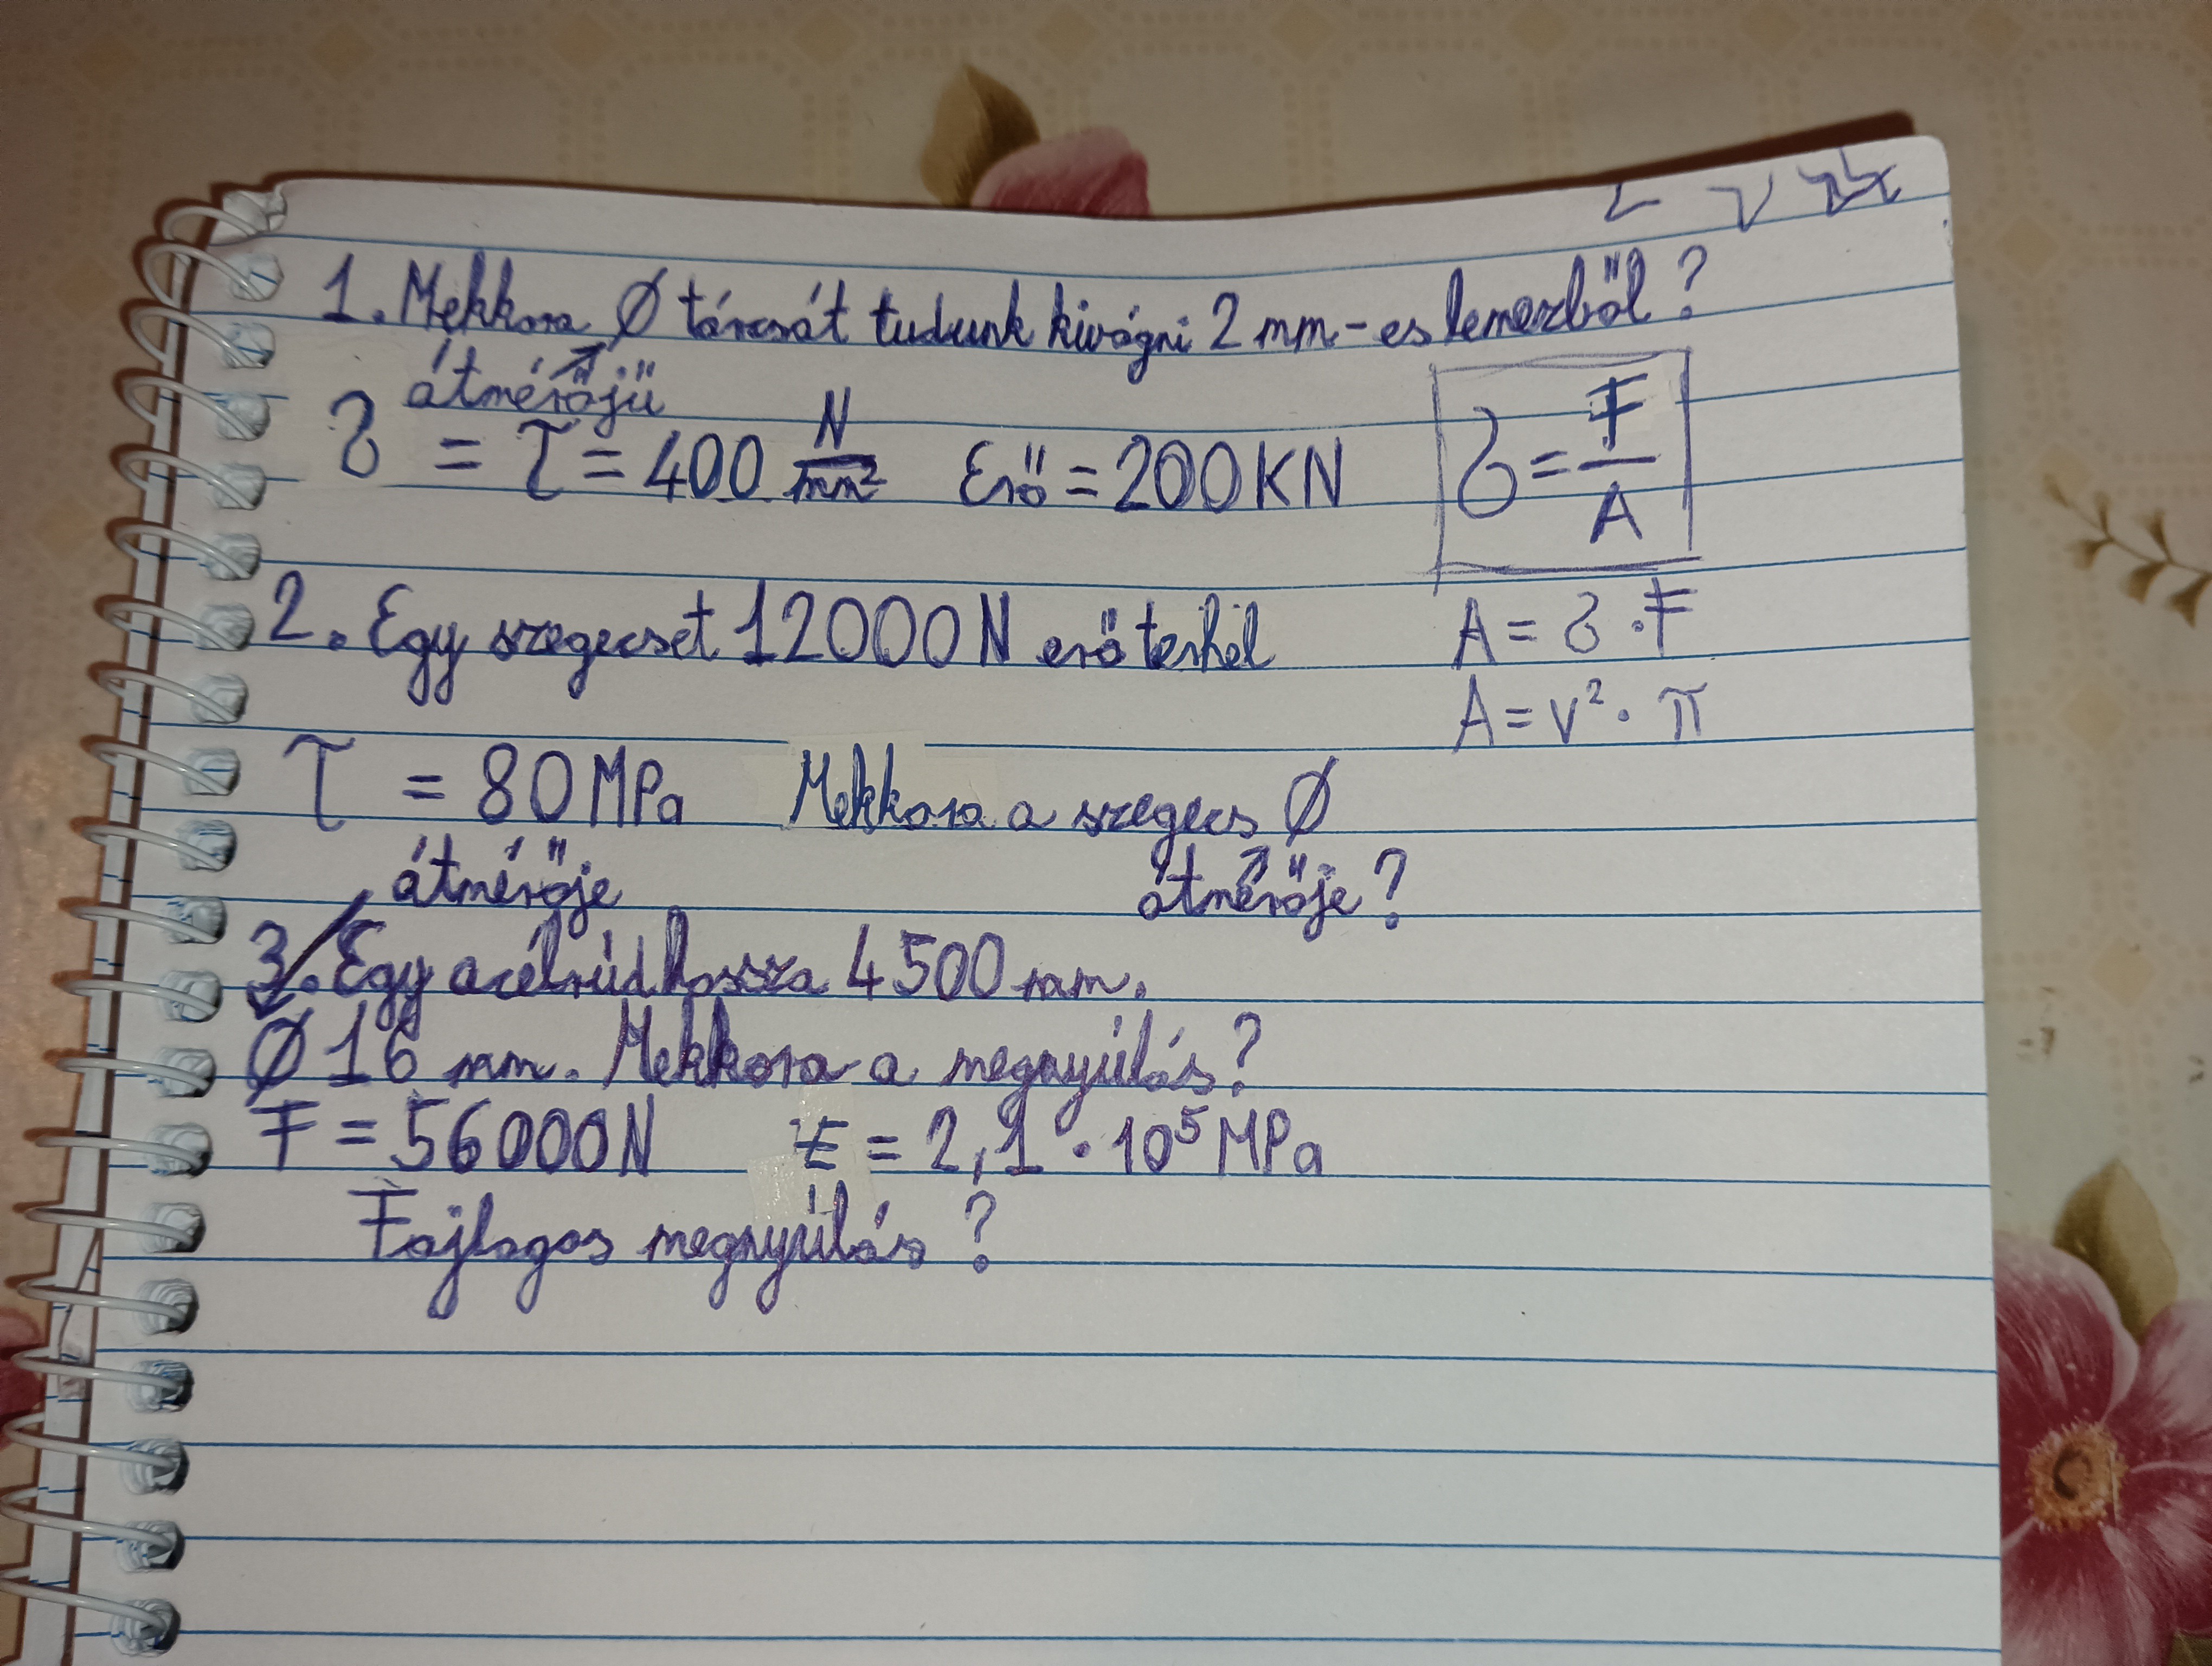 1. Mekkora Ø tárcsát tudunk kivágni 2 mm-es lemezből?
átmérőjű
δ = τ = 400 N/mm² Erő = 200 KN
δ = F/A
2. Egy szegecset 12000 N erő terhel
A = δ · F
A = r² · π
τ = 80 MPa Mekkora a szegecs Ø
átmérője átmérője?
3. Egy acélrúd hossza 4500 mm.
Ø 16 mm. Mekkora a megnyúlás?
F = 56000 N E = 2,1 · 10⁵ MPa
Fajlagos megnyúlás?